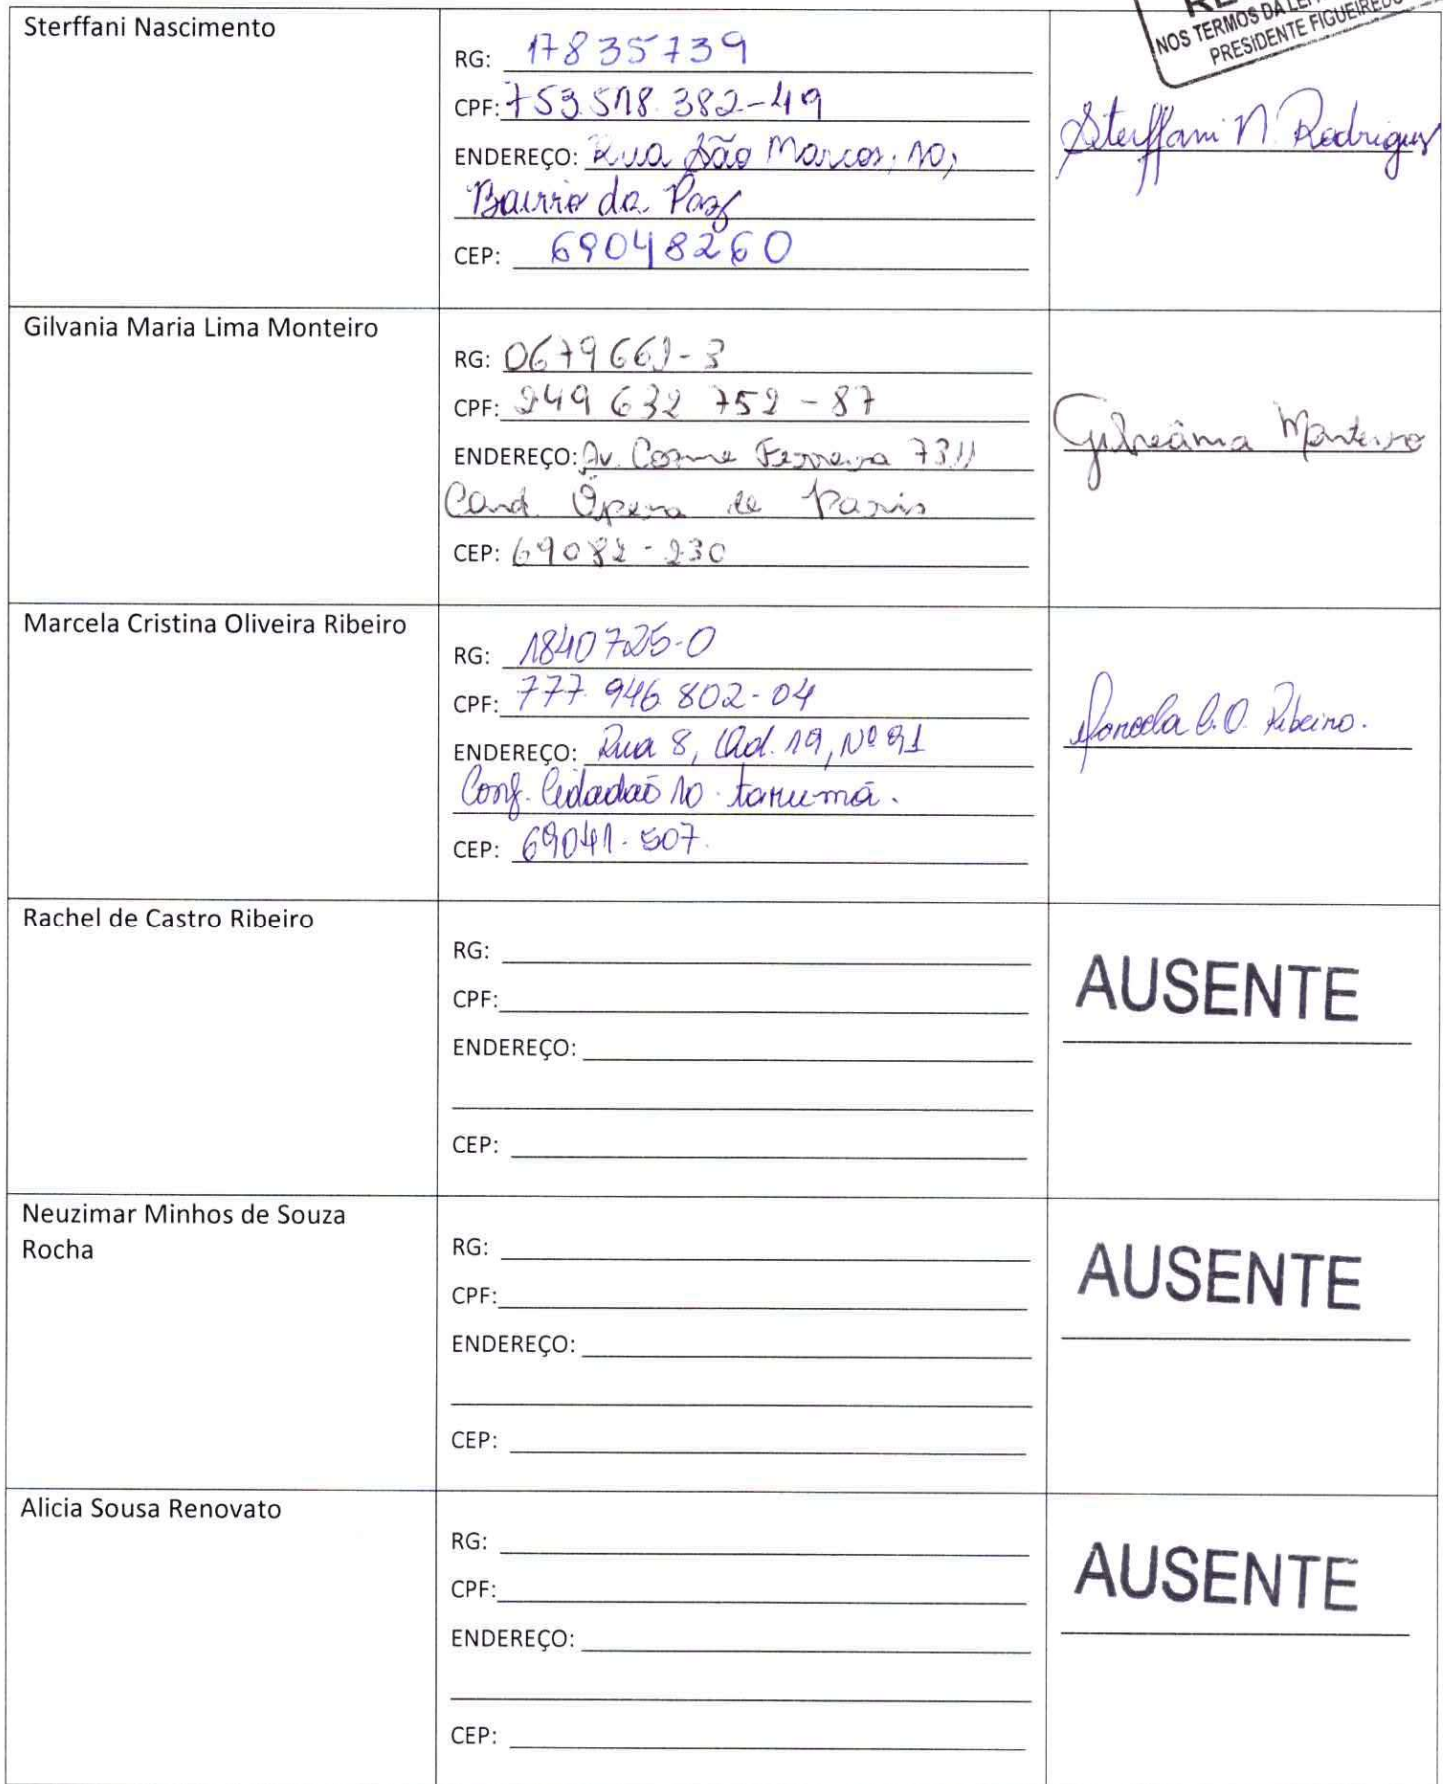 NOS TERMOS DA LEI
PRESIDENTE FIGUEIREDO
Sterffani Nascimento
RG: 17835739
CPF: 753.518.382-49
ENDEREÇO: Rua São Marcos, 10,
Bairro da Paz
CEP: 69048260
Sterffani N. Rodrigues
Gilvania Maria Lima Monteiro
RG: 0679661-3
CPF: 249 632 752 - 87
ENDEREÇO: Av. Cosme Ferreira 7311
Cond. Ópera de Paris
CEP: 69082-230
Gilvânia Monteiro
Marcela Cristina Oliveira Ribeiro
RG: 1840725-0
CPF: 777.946.802-04
ENDEREÇO: Rua 8, Qd. 19, Nº 91
Conj. Cidadão 10. tarumã.
CEP: 69041-507.
Marcela C. O. Ribeiro.
Rachel de Castro Ribeiro
RG:
CPF:
ENDEREÇO:
CEP:
AUSENTE
Neuzimar Minhos de Souza
Rocha
RG:
CPF:
ENDEREÇO:
CEP:
AUSENTE
Alicia Sousa Renovato
RG:
CPF:
ENDEREÇO:
CEP:
AUSENTE